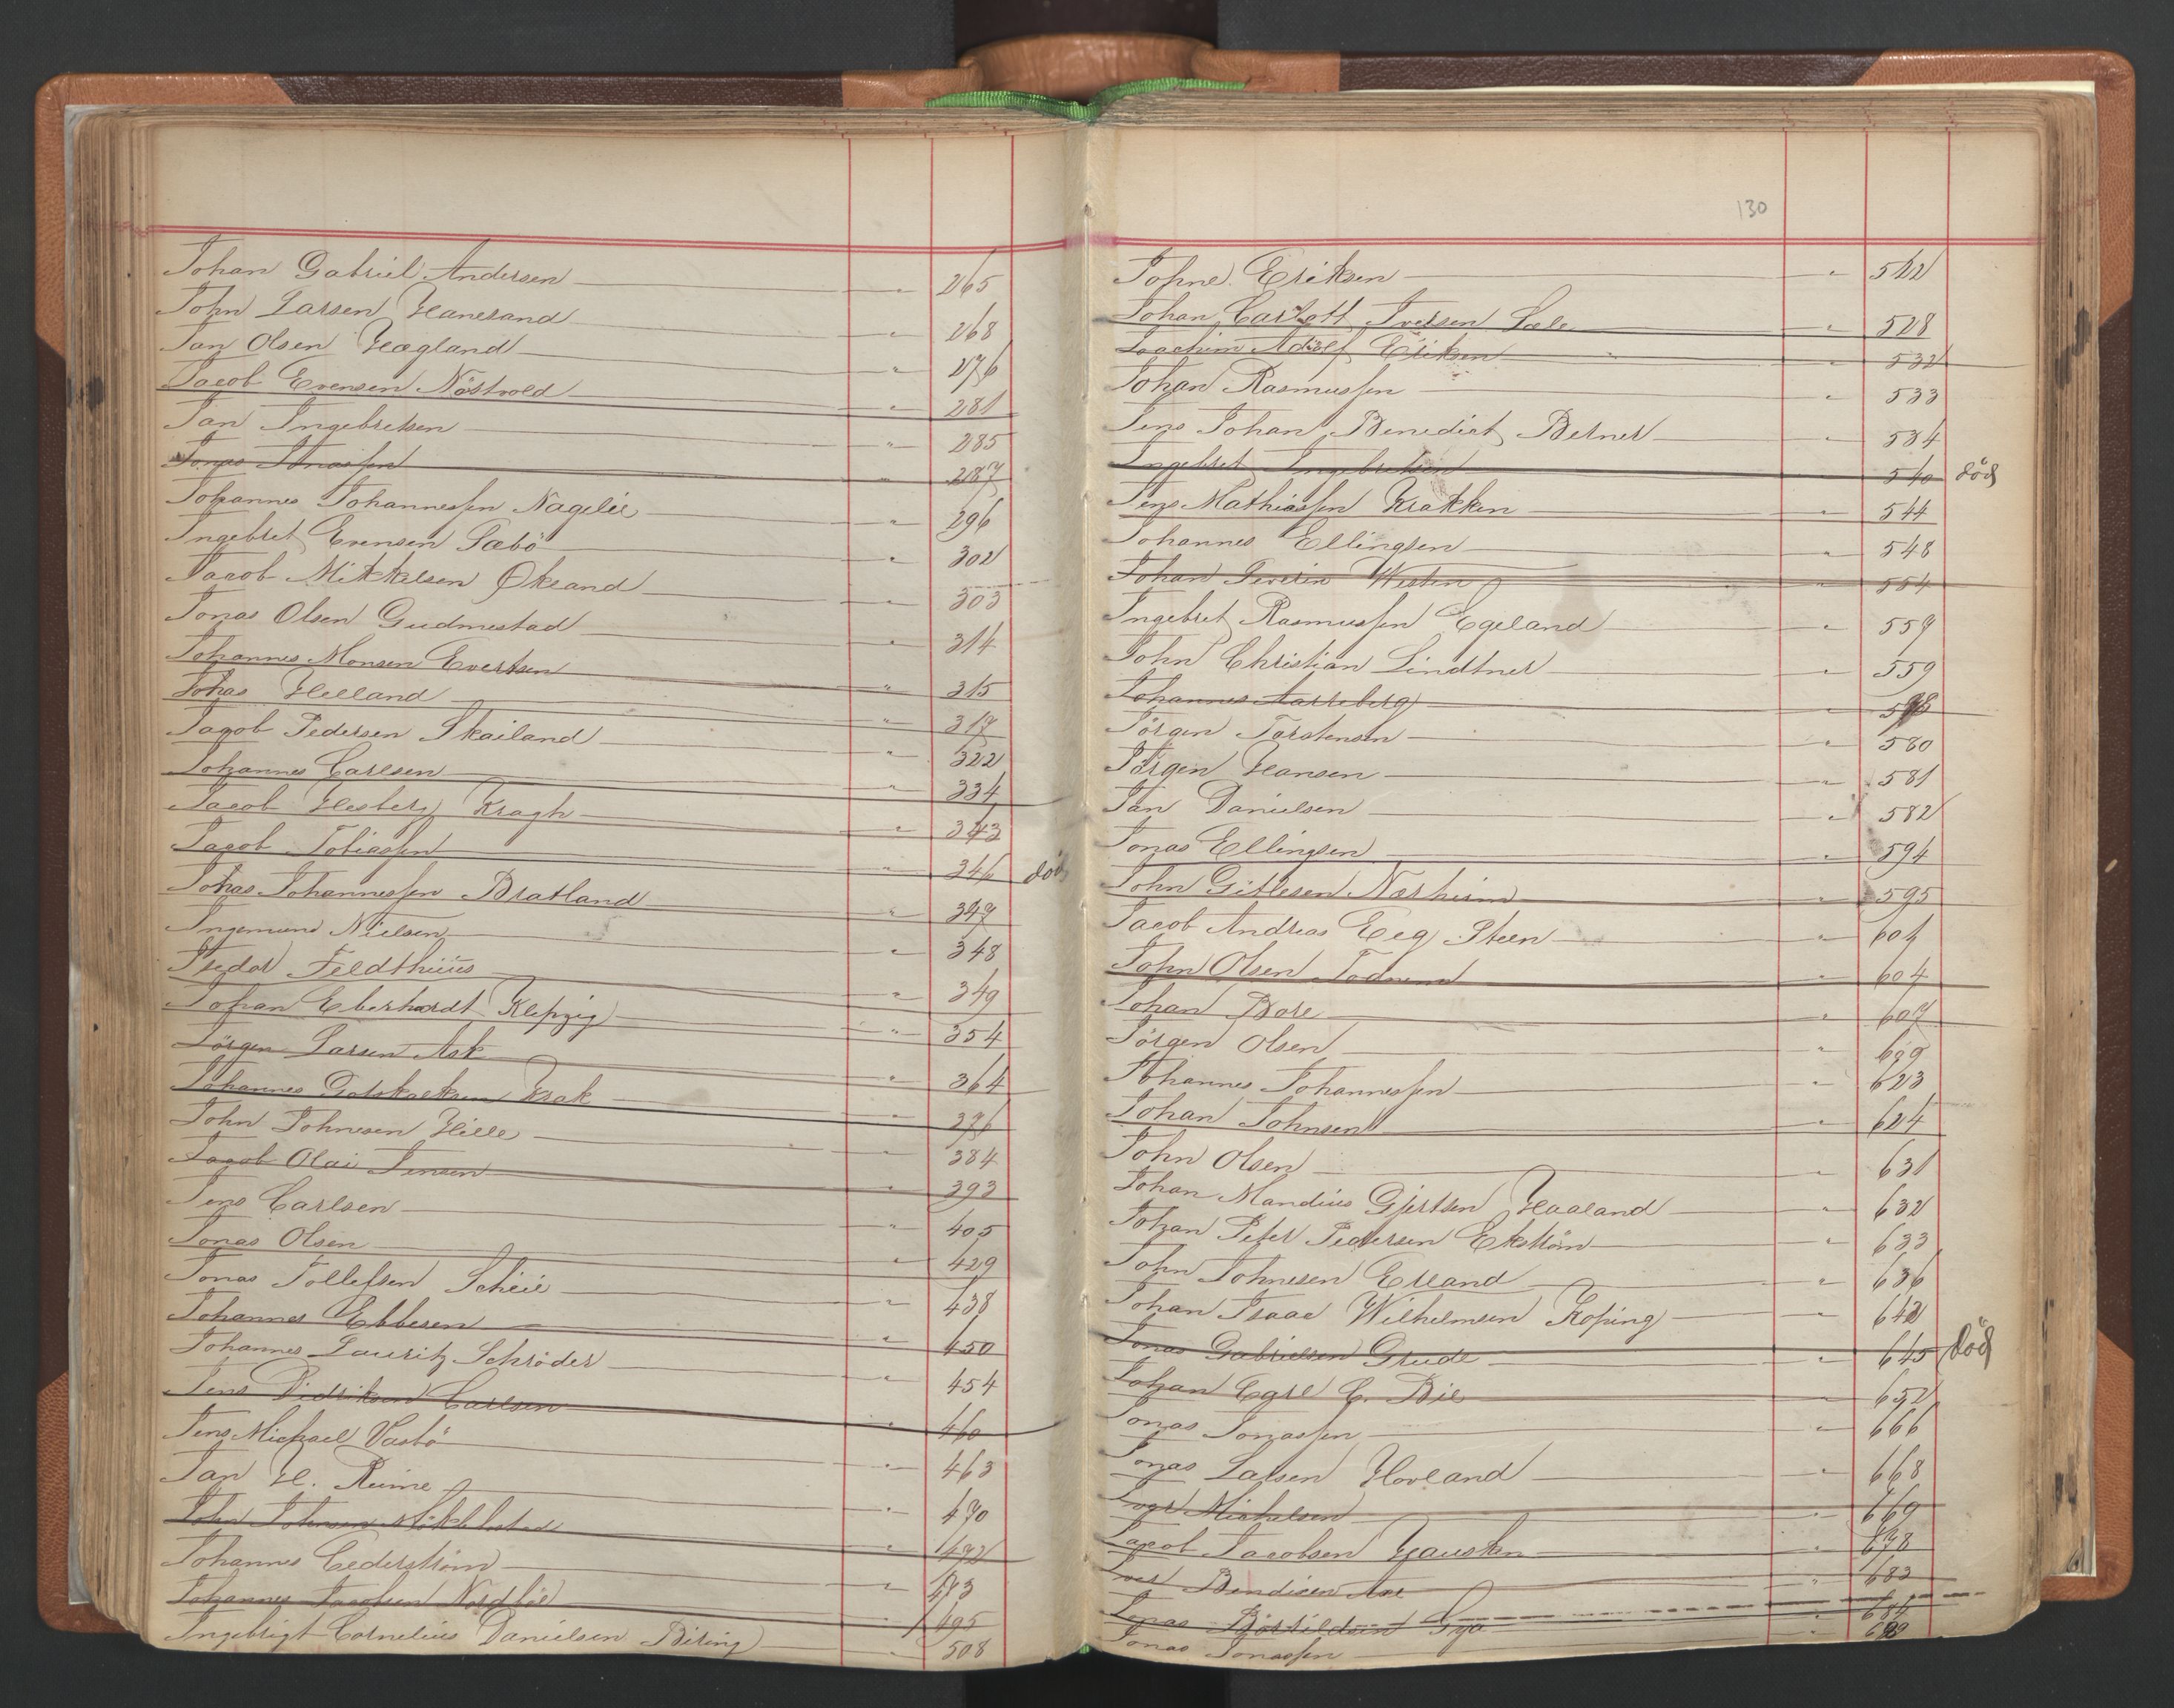 Johan Gabriel Andersen " 265
John Larsen Hanesand " 268
Jan Olsen Hægland " 276
Jacob Evensen Nöstvold " 281
Jan Ingebretsen " 285
Jonas Jonassen " 287
Johannes Johannessen Nagelie " 296
Ingebret Evensen Sæbö " 302
Jacob Mikkelsen Oksand " 303
Jonas Olsen Gudmestad " 314
Johannes Monsen Evertsen " 315
Johas Helland " 317
Jacob Pedersen Skailand " 322
Johannes Carlsen " 334
Jacob Hesberg Kragh " 343
Jacob Tobiassen " 346 död
Johas Johannessen Bratland " 347
Ingemund Nielsen " 348
Isedor Feldthuus " 349
Johan Eberhardt Klepzig " 354
Jörgen Larsen Ask " 364
Johannes Krak " 376
John Johnesen Hille " 384
Jacob Olai Jensen " 393
Jens Carlsen " 405
Jonas Olsen " 429
Jonas Tollefsen Scheie " 438
Johannes Ebbesen " 450
Johannes Lauritz Schröder " 454
Jens Didriksen Carlsen " 460
Jens Michael Vasbö " 463
Jan H. Reime " 470
John Johnsen " 472
Johannes Cederström " 473
Johannes Jacobsen Nordböe " 495
Ingebrigt Cornelius Danielsen Bering " 508
130
Johne Eriksen " 522
Johan Carlott Iversen Sele " 528
Joachim Adolf Eriksen " 532
Johan Rasmussen " 533
Jens Johan Benedict Berner " 534
Ingebret Ingebretsen " 540 död
Jens Mathiassen Krakken " 544
Johannes Ellingsen " 548
Johan Severin Westen " 554
Ingebret Rasmussen Egeland " 559
John Christian Lindtner " 559
Johannes Aarreberg "
Jörgen Torstensen " 580
Jörgen Hansen " 581
Jan Danielsen " 582
Jonas Ellingsen " 594
John Gitlesen Nærheim " 595
Jacob Andreas Eeg Steen "
John Olsen Todnem " 604
Johan Bore " 607
Jörgen Olsen "
Johannes Johannessen " 623
Johan Johnsen " 624
John Olsen " 631
Johan Mandius Gjertsen Haaland " 632
Johan Peter Pedersen Ekström " 633
John Johnesen Erland " 636
Johan Isaac Wilhelmsen Koping " 642
Jonas Gabrielsen Grude " 645 död
Johan Carl C. Bie " 652
Jonas Jonassen " 666
Jonas Larsen Hovland " 668
Iver Michelsen " 669
Jacob Jacobsen Hausken " 678
Iver Bendixen Aae " 683
Jonas Gya " 684
Jonas Jonassen "